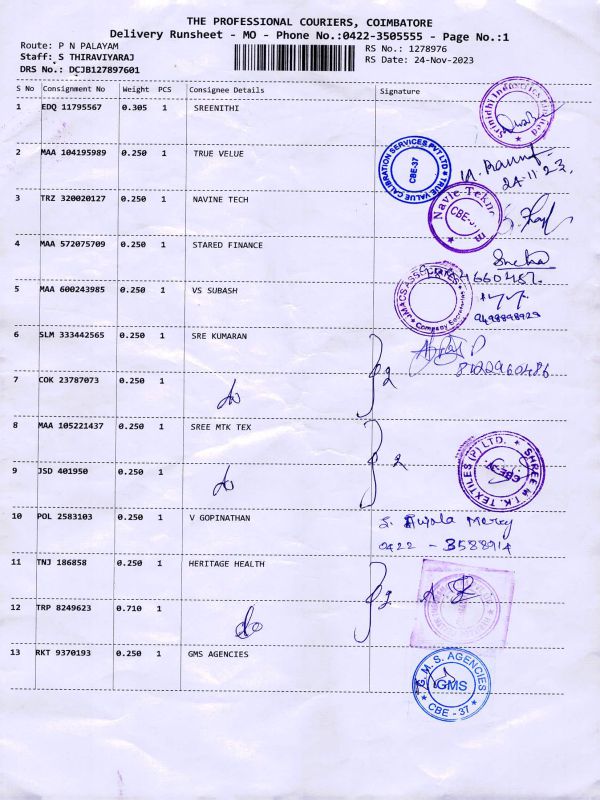 THE PROFESSIONAL COURIERS, COIMBATORE
Delivery Runsheet - MO - Phone No.:0422-3505555 - Page No.:1
Route: P N PALAYAM
RS No.: 1278976
Staff: S THIRAVIYARAJ
RS Date: 24-Nov-2023
DRS No.: DCJB127897601
S No Consignment No Weight PCS Consignee Details Signature
1 EDQ 11795567 0.305 1 SREENITHI
2 MAA 104195989 0.250 1 TRUE VELUE
TRUE VALUE CALIBRATION SERVICES PVT LTD
CBE-37
24.11.23
3 TRZ 320020127 0.250 1 NAVINE TECH
Navie Tekno
4 MAA 572075709 0.250 1 STARED FINANCE
Sneha
5 MAA 600243985 0.250 1 VS SUBASH
Company Secretaries
9498898929
6 SLM 333442565 0.250 1 SRE KUMARAN
2
8122960486
7 COK 23787073 0.250 1
do
8 MAA 105221437 0.250 1 SREE MTK TEX
2
SHREE M.T.K. TEXTILES (P) LTD.
9 JSD 401950 0.250 1
do
10 POL 2583103 0.250 1 V GOPINATHAN
0422 - 3588914
11 TNJ 186858 0.250 1 HERITAGE HEALTH
2
12 TRP 8249623 0.710 1
do
13 RKT 9370193 0.250 1 GMS AGENCIES
G.M.S. AGENCIES
GMS
CBE - 37